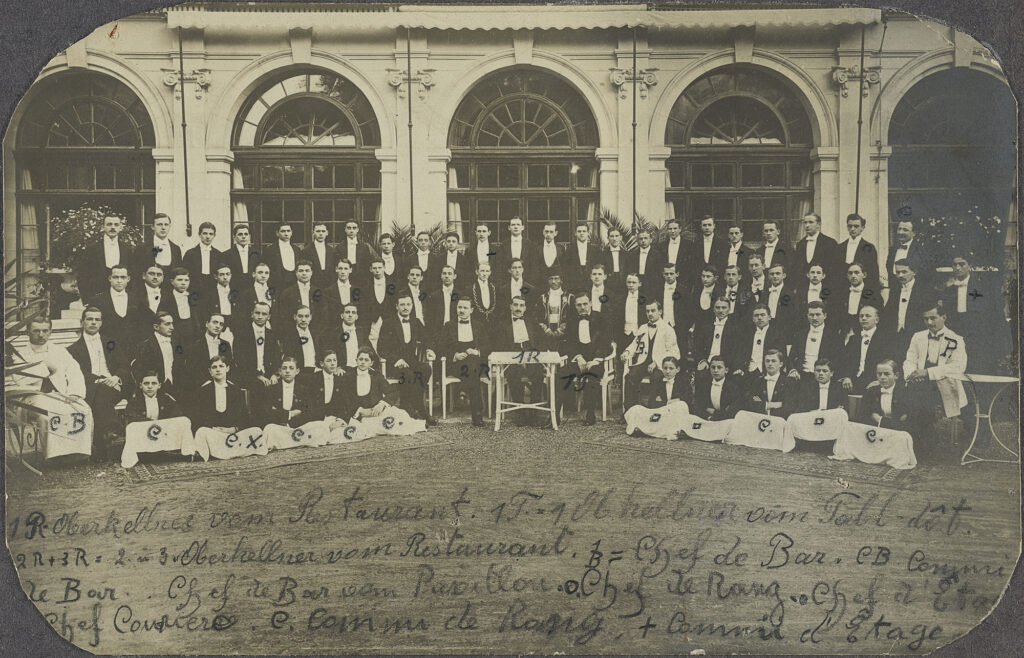 1R
3.R
2.R
1T.
B
R
C B
C.
C.X
C.
C.
C.
C.
C.
C.
C.
C.
1R. Oberkellner vom Restaurant. 1T. = 1 Obkellner vom Tabl-dôt.
2R + 3R = 2. u 3. Oberkellner vom Restaurant. = Chef de Bar. CB Commi
de Bar. . Chef de Bar vom Pavillon. o. Chef de Rang. . Chef d'Eta
Chef . C. Commi de Rang. + Commi d'Etage